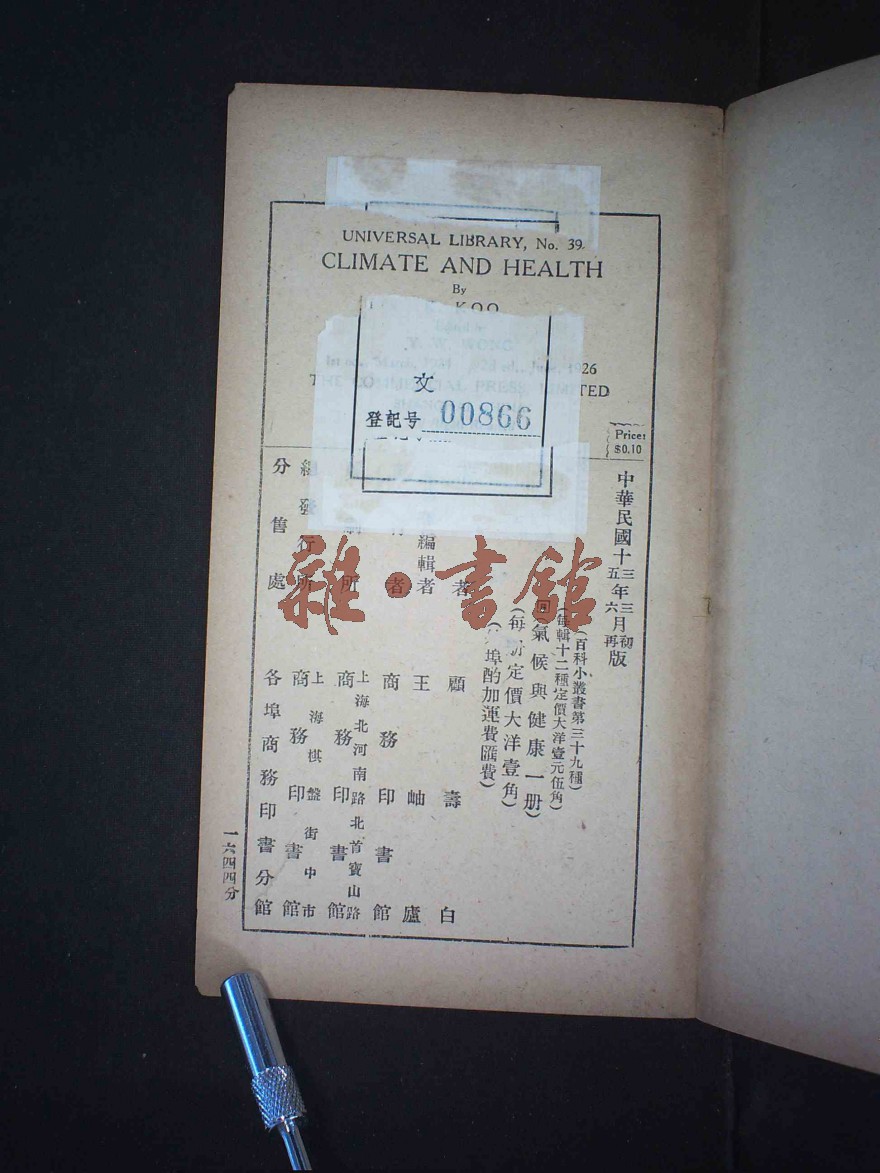 UNIVERSAL LIBRARY, No. 39
CLIMATE AND HEALTH
By
KOO
文
登記号 00866
Price:
$0.10
中華民國十三年三月初版
五 六 再
(百科小叢書第三十九種)
(每輯十二種定價大洋壹元伍角)
氣候與健康一册)
(每册定價大洋壹角)
埠酌加運費匯費)
者 顧壽白
編輯者 王岫廬
者 商務印書館
所 上海北河南路北首寶山路
商務印書館
發行所 上海棋盤街中市
商務印書館
分售處 各埠商務印書分館
一六四四分
雜·書館